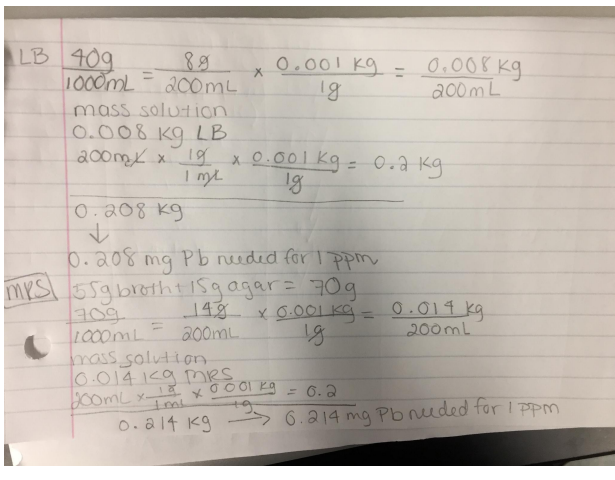 LB 40g/1000mL = 8g/200mL × 0.001 kg/1g = 0.008 kg/200mL
mass solution
0.008 kg LB
200mL × 1g/1mL × 0.001 kg/1g = 0.2 kg
0.208 kg
↓
0.208 mg Pb needed for 1 ppm
MRS 55g broth + 15g agar = 70g
70g/1000mL = 14g/200mL × 0.001 kg/1g = 0.014 kg/200mL
mass solution
0.014 kg MRS
200mL × 1g/1mL × 0.001 kg/1g = 0.2
0.214 kg → 0.214 mg Pb needed for 1 ppm